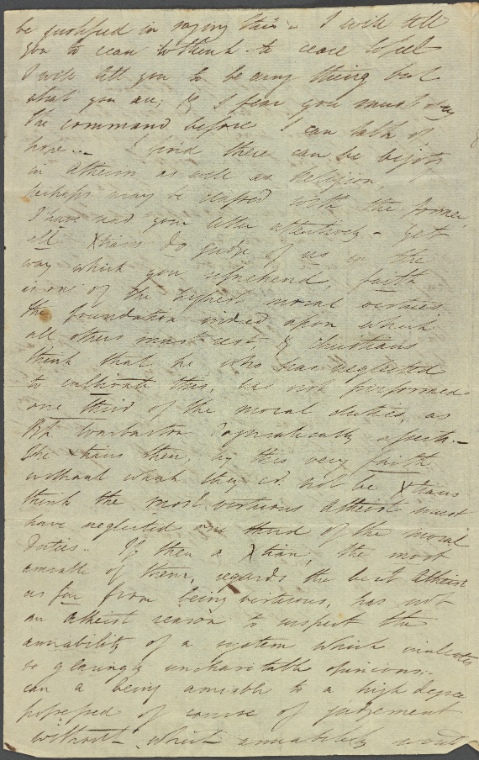 be justified in saying this - I will tell
you to cease to think - to cease to feel
I will tell you to be any thing but
what you are; & I fear you must obey
the command before I can talk of
hope.— I find there can be bigots
in Atheism as well as Religion,
perhaps may be classed with the former.
I have read your letter attentively - Yet
all Xtians do judge of us in the
way which you reprehend, faith
is one of the highest moral virtues,
the foundation indeed upon which
all others must rest, & Christians
think that he who has neglected
to cultivate this, has not performed
one third of the moral duties, as
Bp. Warburton dogmatically asserts.—
The Xtians then, by this very faith,
without which they cd. not be Xtians
think the most virtuous Atheist must
have neglected one third of the moral
Duties. If then a Xtian, the most
amiable of them, regards the best Atheist
as far from being virtuous, has not
an Atheist reason to suspect the
amiability of a system which inculcates
so glaringly uncharitable opinions.
can a being amiable to a high degree
possessed of course of judgement
without which amiability would